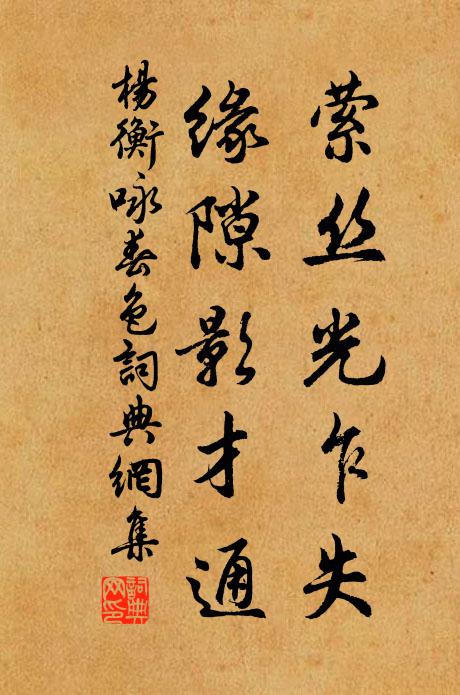 萦丝光乍失
缘隙影才通
杨衡咏春色词典网集
詞典
网印